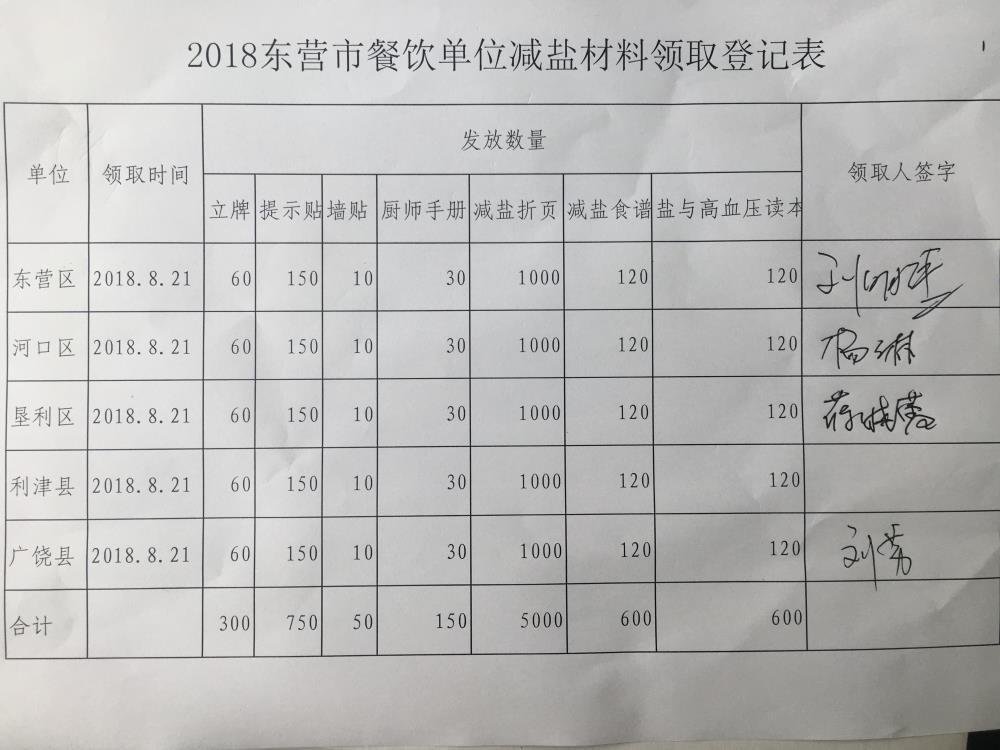 2018东营市餐饮单位减盐材料领取登记表
单位 领取时间 发放数量 领取人签字
立牌 提示贴 墙贴 厨师手册 减盐折页 减盐食谱 盐与高血压读本
东营区 2018.8.21 60 150 10 30 1000 120 120
河口区 2018.8.21 60 150 10 30 1000 120 120 杨琳
垦利区 2018.8.21 60 150 10 30 1000 120 120
利津县 2018.8.21 60 150 10 30 1000 120 120
广饶县 2018.8.21 60 150 10 30 1000 120 120 刘芳
合计 300 750 50 150 5000 600 600